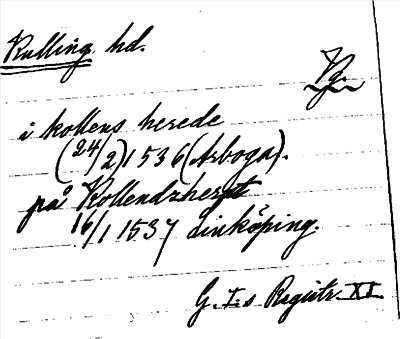 Kulling hd.
Vg.
i kollens herede
(24/2) 1536 (Arboga).
på Kollendzherpt
16/1 1537 Linköping.
G. I.s Registr. XI